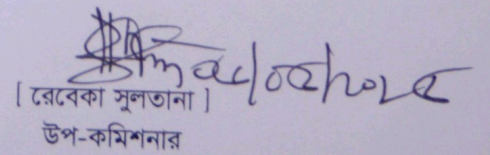 [ রেবেকা সুলতানা ]
উপ-কমিশনার